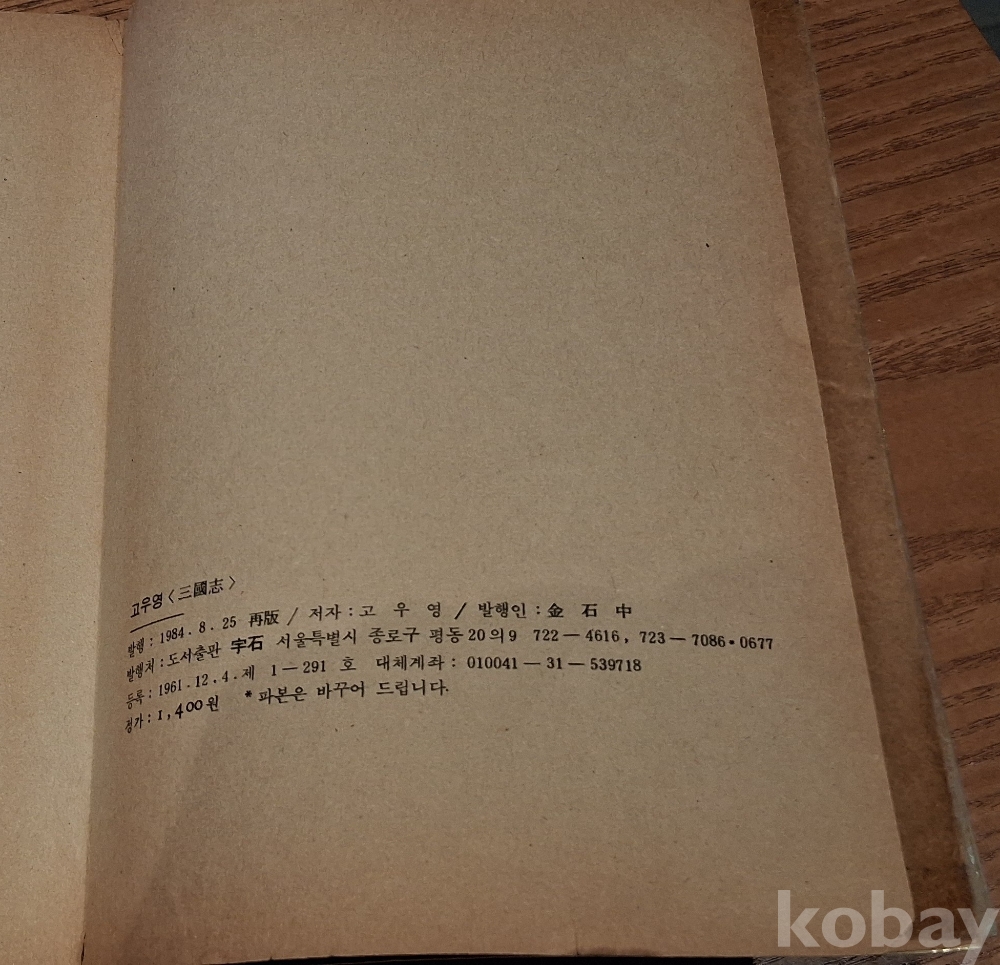 고우영〈三國志〉
발행：1984.8.25 再版 / 저자：고 우 영 / 발행인：金 石 中
발행처：도서출판 宇石 서울특별시 종로구 평동 20의 9 722－4616, 723－7086·0677
등록：1961.12.4.제 1－291 호 대체계좌：010041－31－539718
정가：1,400원 *파본은 바꾸어 드립니다.
kobay